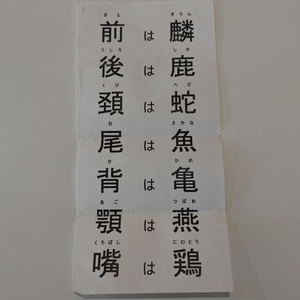 まえ きりん
前は麟
うしろ しか
後は鹿
くび へび
頚は蛇
お さかな
尾は魚
せ かめ
背は亀
あご つばめ
顎は燕
くちばし にわとり
嘴は鶏